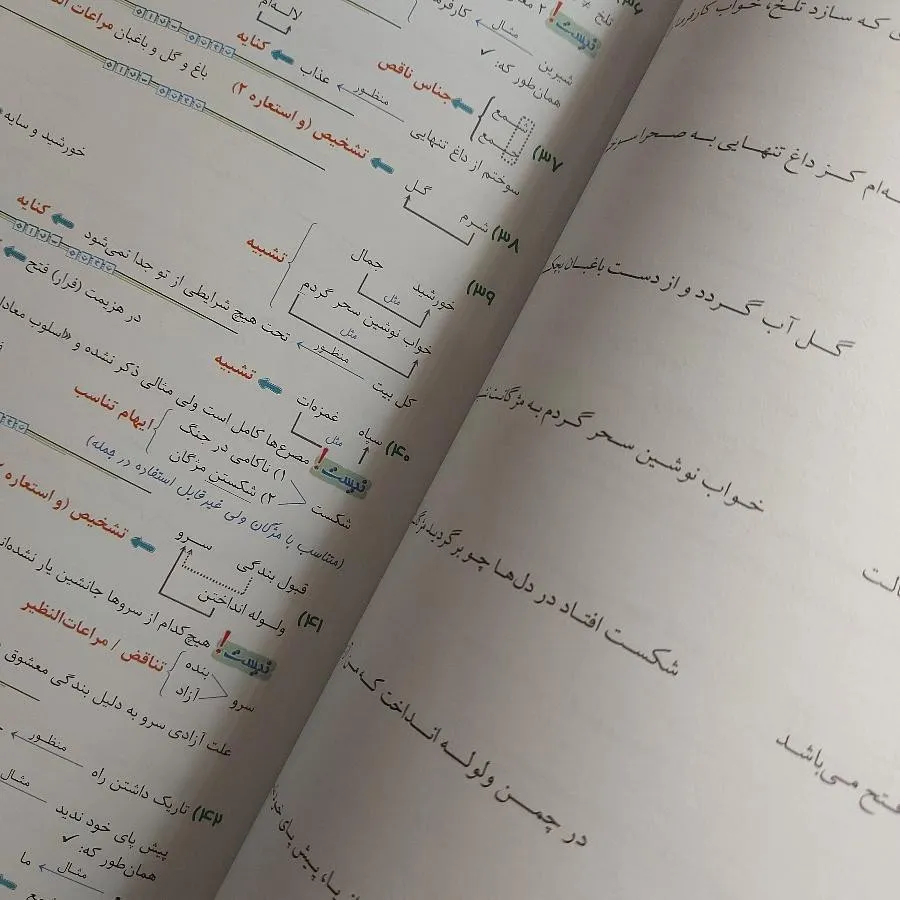 که سازد تلخ، خواب
کز داغ تنهایی به صحرا
گل آب گردد و از دست باغبان
خواب نوشین سحر گردم به
شکست افتاد در دل‌ها چو برگردید
فتح می‌باشد
در چمن ولوله انداخت که
پیش پای
۳۶)
تلخ ≠
شیرین
نیست!
مثال
همان‌طور که: ✓
۳۷)
شمع
جمع
جناس ناقص
سوختم از داغ تنهایی منظور عذاب کنایه
لاله‌ام
باغ و گل و باغبان مراعات
۳۸)
شرم گل تشخیص (و استعاره ۲)
۳۹)
خورشید مثل جمال
خواب نوشین سحر گردم مثل
تشبیه
خورشید و سایه
کل بیت منظور تحت هیچ شرایطی از تو جدا نمی‌شود کنایه
۴۰)
سپاه مثل غمزه‌ات تشبیه
در هزیمت (فرار) فتح
نیست! مصرع‌ها کامل است ولی مثالی ذکر نشده و «اسلوب
شکست
۱) ناکامی در جنگ
۲) شکستن مژگان
ایهام تناسب
(متناسب با مژگان ولی غیرقابل استفاده در جمله)
۴۱)
قبول بندگی
ولوله انداختن
سرو تشخیص (و استعاره
نیست! هیچ‌کدام از سروها جانشین یار نشده‌اند
سرو
بنده
آزاد
تناقض / مراعات‌النظیر
علت آزادی سرو به دلیل بندگی معشوق
۴۲)
تاریک داشتن راه منظور
پیش پای خود ندید مثال
همان‌طور که: ✓
مثال ما